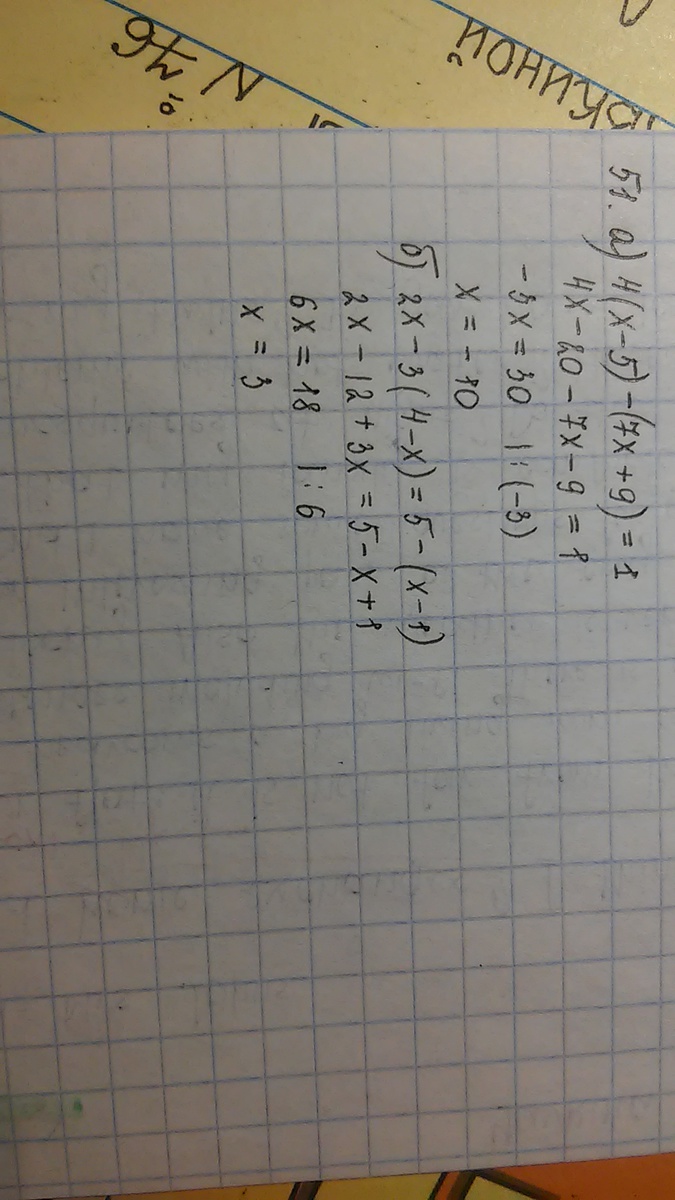 51. а) 4(x-5)-(7x+9)=1
4x-20-7x-9=1
-3x=30 |:(-3)
x=-10
б) 2x-3(4-x)=5-(x-1)
2x-12+3x=5-x+1
6x=18 |:6
x=3
N